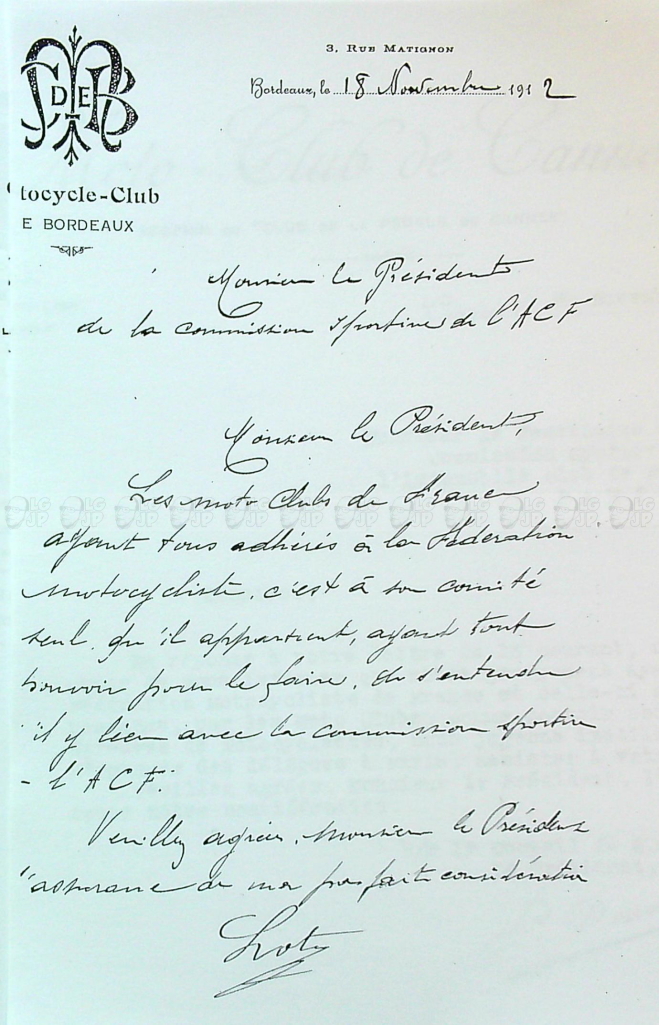 3, RUE MATIGNON
Bordeaux, le 18 Novembre 1912
DE
tocycle-Club
E BORDEAUX
Monsieur le Président
de la commission sportive de l'ACF
Monsieur le Président,
Les moto Clubs de France
ayant tous adhérés à la Fédération
motocycliste, c'est à son comité
seul qu'il appartient, ayant tout
pouvoir pour le faire, de s'entendre
'il y lieu avec la commission sportive
l'ACF.
Veuillez agréer, Monsieur le Président
'assurance de ma parfaite considération